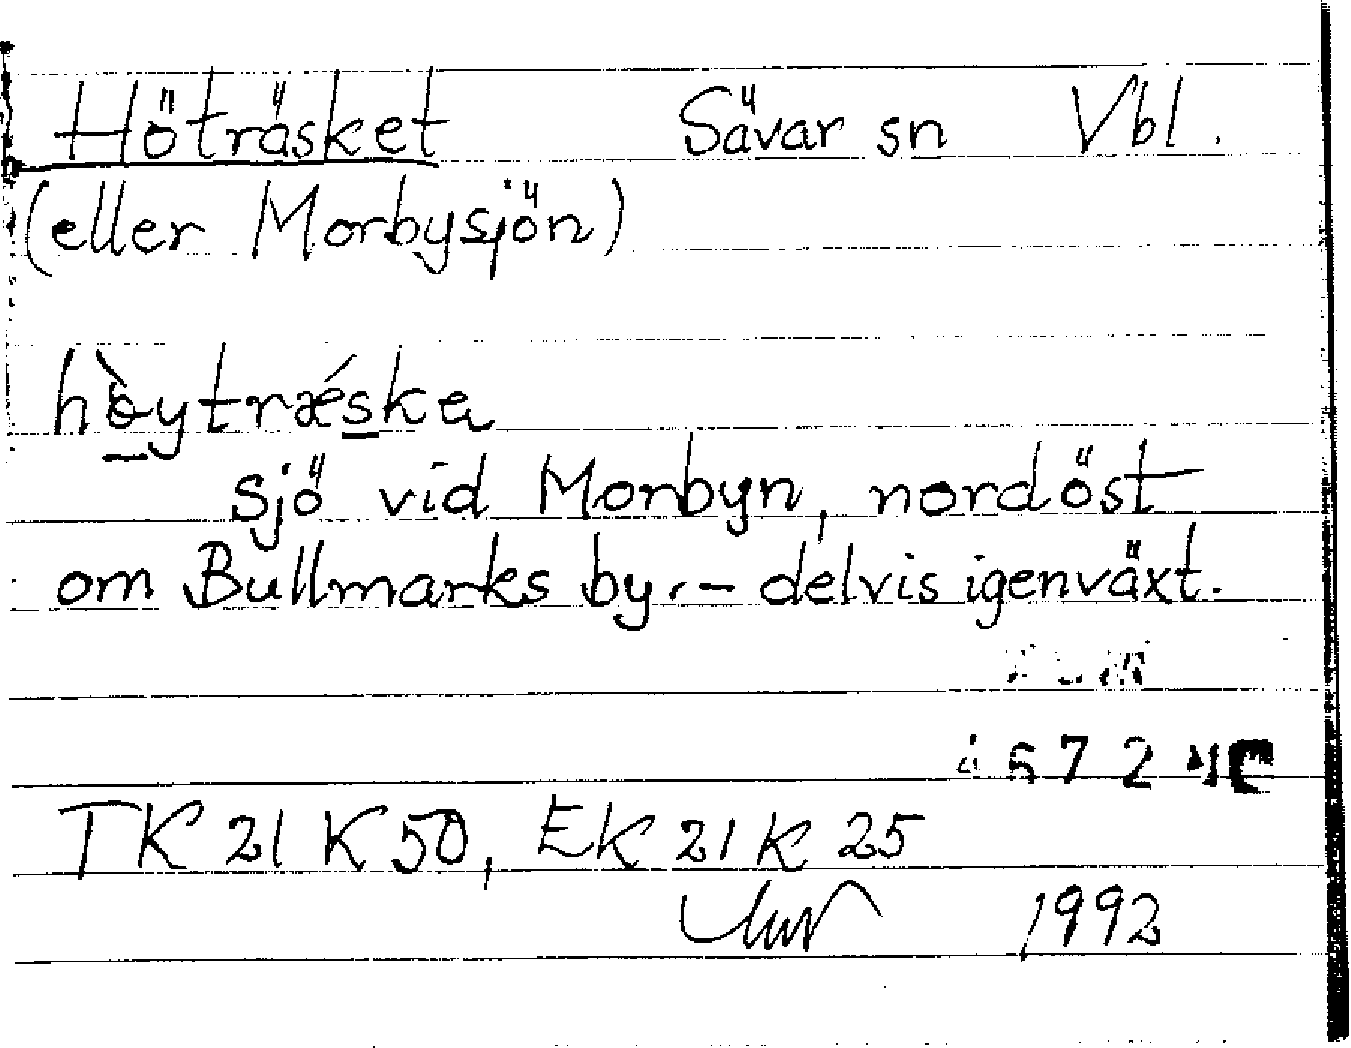 Höträsket Sävar sn Vbl.
(eller Morbysjön)
hòytrǽska
sjö vid Morbyn, nordöst
om Bullmarks by. – delvis igenväxt.
672
TK 21 K 50, EK 21 K 25
1992